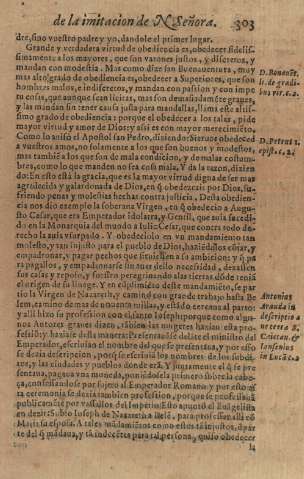 de la imitacion de N. Señora. 303
dre, sino vuestro padre y yo, dandole el primer lugar.
Grande y verdadera virtud de obediencia es, obedecer fidelissimamente
a los mayores, que son varones justos, y discretos, y
mandan con modestia. Mas como dize san Buenauentura, muy
mas alto grado de obediencia es, obedecer a Superiores, que son
hombres malos, e indiscretos, y mandan con passion y con imperio
cosas, que aunque sean licitas, mas son demasiadamẽte graues,
y las mandan sin tener causa justa para mandallas,
grado de obediencia: porque el obedecer a los tales, pide
mayor virtud y amor de Dios: y assi es con mayor merecimiento.
Como lo auisò el Apostol san Pedro, diziendo: Sieruos obedeced
a vuestros amos, no solamente a los que son buenos y modestos,
mas tambiẽ a los que son de mala condicion, y de malas costumbres,
como lo que manden no sea cosa mala. Y da la razon, diziendo:
En esto está la gracia, que es la mayor virtud digna de ser mas
agradecida y galardonada de Dios, en q̃ obedezcais por Dios, sufriendo
penas y molestias hechas contra justicia. Desta obediencia
nos dio exemplo la soberana Virgen, en q̃ obedecio a Augusto
Cesar, que era Emperador idolatra, y Gentil, que auia sucedido
en la Monarquia del mundo a Iulio Cesar, que contra todo derecho
la auia vsurpado. Y obedeciolo en vn mandamiento tan
molesto, y tan injusto para el pueblo de Dios,
empadronar, y pagar pechos que siruiessen a su ambicion: y q̃ para
pagallos, y empadronarse sin auer dello necessidad, dexassen
sus casas y reposo, y fuessen peregrinando a las tierras dõde tenia
el origen de su linage. Y en cũplimiẽto deste mandamiẽto, se partio
la Virgen de Nazareth, y caminò con grande trabajo hasta Belem,
camino de mas de nouenta millas, y estãdo cercana al parto:
y alli hizo su profession con el santo Ioseph:
nos Autores graues dizen, 
fession, y haziase desta manera: Presentauase delãte el ministro del
Emperador, escriuian el nombre del que se presentaua, y por esso
se dezia descripcion, porq̃ se escriuia los nombres de los subditos,
y las ciudades y pueblos donde era. Y juntamente el q̃ se presentaua,
pagaua vna moneda, 
ça, confessandose por sujeto al Emperador Romano: y por esto esta
ceremonia se dezia tambien profession, porque se professauã
publicamẽte por vassallos del Imperio. Esto apuntò el Euãgelista
en dezir: Subio Ioseph de Nazareth a Belẽ, para professar alli cõ
Maria su esposa. A tales mãdamiẽtos como estos tã injustos, de parte
del q̃ mãdaua, y tã indecẽtes para tal persona, quiso obedecer
la
D. Bonauẽt.
li. de gradib.
vir. c. 2.
D. Petrus 1.
epist. c. 2.
Antonius
Aranda in
descriptio
ne terra S.
Caietan. &
Iansenius
in Lucã c. 2.